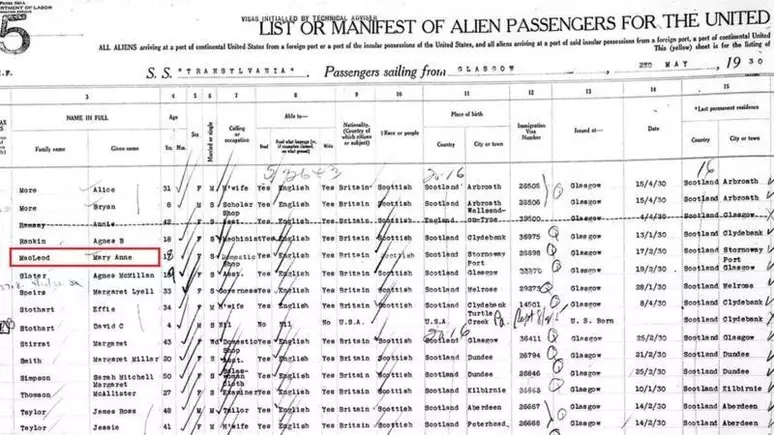 5
VISAS INITIALLED BY TECHNICAL ADVISER
LIST OR MANIFEST OF ALIEN PASSENGERS FOR THE UNITED
ALL ALIENS arriving at a port of continental United States from a foreign port or a port of the insular possessions of the United States, and all aliens arriving at a port of said insular possessions from a foreign port, a port of continental
This (yellow) sheet is for the listing of
S. S. "TRANSYLVANIA" Passengers sailing from GLASGOW 2ND MAY , 19 30
3 4 5 6 7 8 9 10 11 12 13 14 15
NAME IN FULL Age Sex Married or single Calling or occupation Able to— Nationality (Country of which citizen or subject) Race or people Place of birth Immigration Visa Number Issued at— Date *Last permanent residence
Family name Given name Yrs. Mos. Read Write Country City or town Country City or town
More Alice 31 F M H'wife Yes English Yes Britain Scottish Scotland Arbroath 26505 Glasgow 15/4/30 Scotland Arbroath
More Bryan 8 M S Scholar Yes English Yes Britain Scottish Scotland Arbroath 26506 Glasgow 15/4/30 Scotland Arbroath
Ramsay Annie 42 Shop Asst. Yes English Yes Britain Scottish England Wallsend-on-Tyne 39500 Glasgow 4/4/30 Scotland Glasgow
Rankin Agnes B 18 F S Machinist Yes English Yes Britain Scottish Scotland Clydebank 36975 Glasgow 13/1/30 Scotland Clydebank
MacLeod Mary Anne 18 F S Domestic Yes English Yes Britain Scottish Scotland Stornoway Glasgow 17/2/30 Scotland Stornoway
Slater Agnes McMillan 19 F S Shop Asst. Yes English Yes Britain Scottish Scotland Port Glasgow Glasgow 19/2/30 Scotland Port Glasgow
Speirs Margaret Lyell 33 F S Governess Yes English Yes Britain Scottish Scotland Melrose 29273 Glasgow 28/1/30 Scotland Melrose
Stothart Effie 34 F M H'wife Yes English Yes Britain Scottish Scotland Clydebank 14501 Glasgow 8/4/30 Scotland Clydebank
Stothart David C 4 M S Nil No Nil No U.S.A. U.S.A. Turtle Creek U.S. Born Scotland Clydebank
Stirrat Margaret 43 F Wd Domestic Yes English Yes Britain Scottish Scotland Glasgow 36411 Glasgow 25/2/30 Scotland Glasgow
Smith Margaret Millar 20 F S Shop Asst. Yes English Yes Britain Scottish Scotland Dundee 26794 Glasgow 21/2/30 Scotland Dundee
Simpson Sarah Mitchell 50 F S Saleswoman Yes English Yes Britain Scottish Scotland Dundee 26846 Glasgow 25/2/30 Scotland Dundee
Thomson Margaret McAllister 27 F S Cloth Examiner Yes English Yes Britain Scottish Scotland Kilbirnie Glasgow 10/1/30 Scotland Kilbirnie
Taylor James Ross 48 M M Tailor Yes English Yes Britain Scottish Scotland Aberdeen 26667 Glasgow 14/2/30 Scotland Aberdeen
Taylor Jessie 41 F M H'wife Yes English Yes Britain Scottish Scotland Peterhead 26668 Glasgow 14/2/30 Scotland Aberdeen